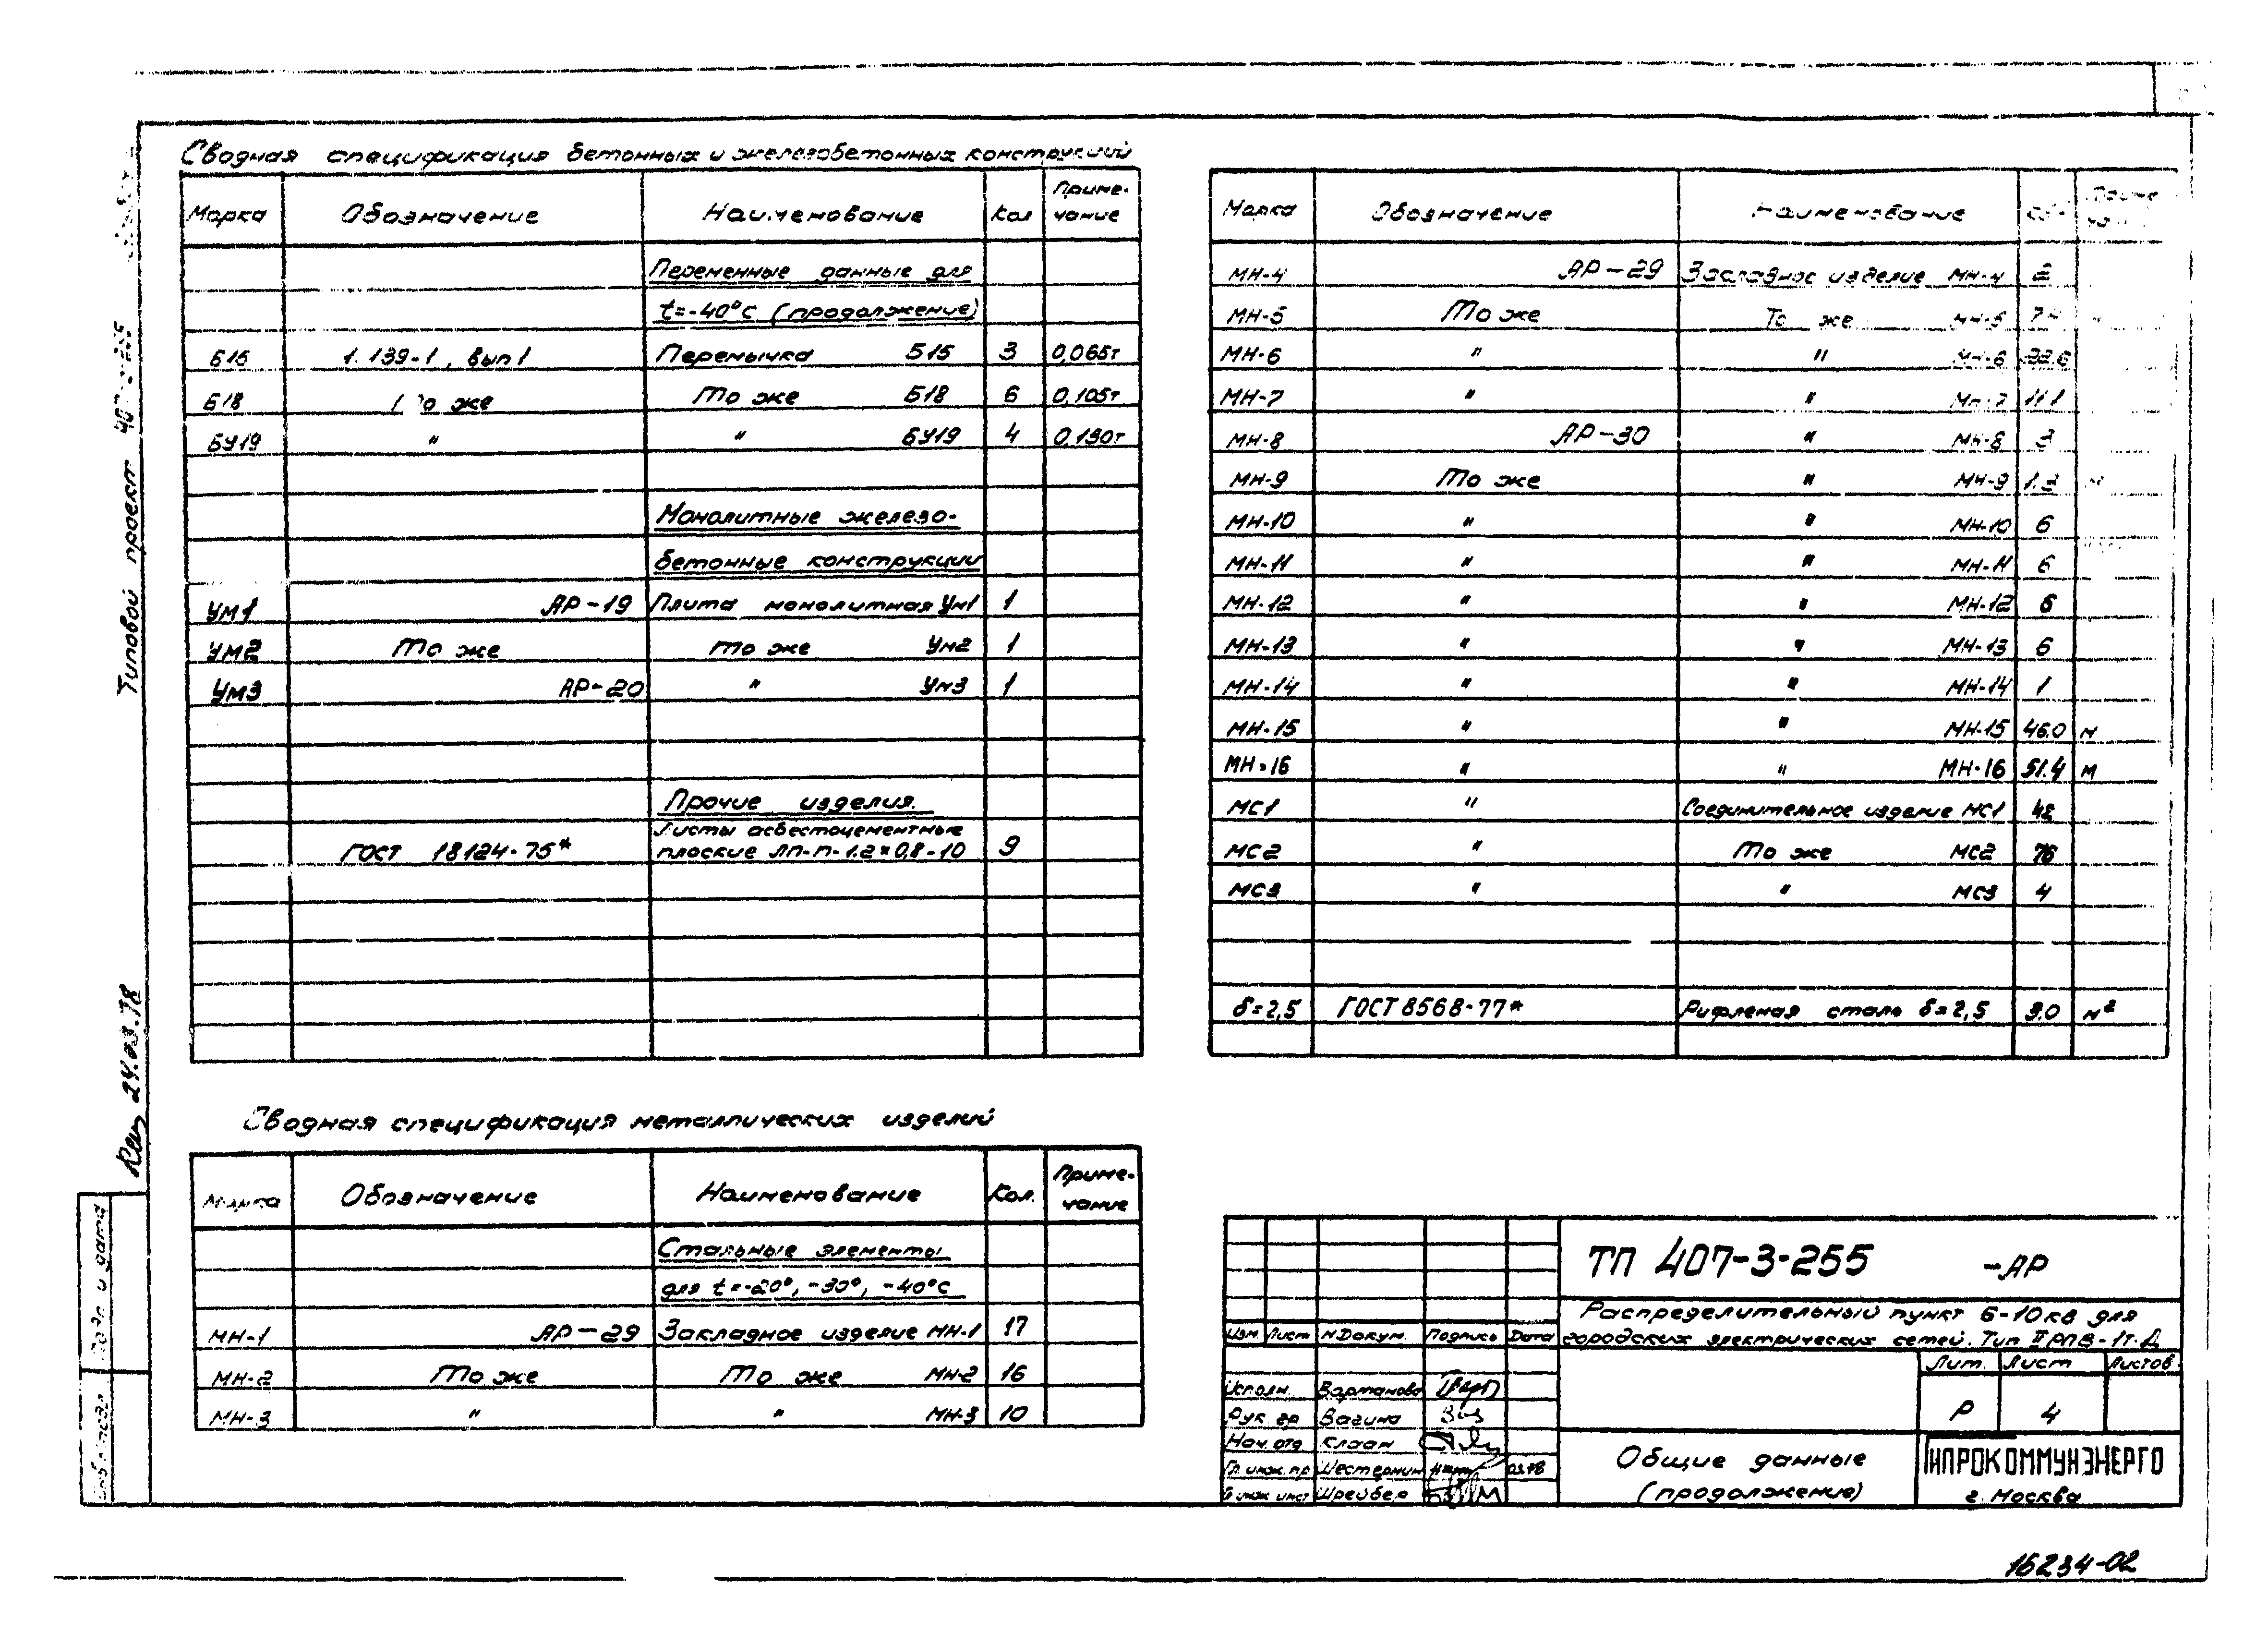 Сводная спецификация бетонных и железобетонных конструкций
Марка Обозначение Наименование Кол Приме-
чание
Переменные данные для
t=-40°С (продолжение)
Б15 1.139-1, вып1 Перемычка Б15 3 0,065т
Б18 То же То же Б18 6 0,105т
БУ19 " " БУ19 4 0,130т
Монолитные железо-
бетонные конструкции
Ум1 АР-19 Плита монолитная Ум1 1
Ум2 То же То же Ум2 1
Ум3 АР-20 " Ум3 1
Прочие изделия.
Листы асбестоцементные
ГОСТ 18124-75* плоские ЛП-П-1.2×0,8-10 9
Сводная спецификация металлических изделий
Марка Обозначение Наименование Кол. Приме-
чание
Стальные элементы
для t=-20°, -30°, -40°С
МН-1 АР-29 Закладное изделие МН-1 17
МН-2 То же То же МН-2 16
МН-3 " " МН-3 10
Марка Обозначение Наименование
МН-4 АР-29 Закладное изделие МН-4 2
МН-5 То же То же МН-5
МН-6 " " МН-6 22.6
МН-7 " " МН-7 11.1
МН-8 АР-30 " МН-8 3
МН-9 То же " МН-9 1.3 м
МН-10 " " МН-10 6
МН-11 " " МН-11 6
МН-12 " " МН-12 6
МН-13 " " МН-13 6
МН-14 " " МН-14 1
МН-15 " " МН-15 46.0 м
МН-16 " " МН-16 51.4 м
МС1 " Соединительное изделие МС1 48
МС2 " То же МС2 76
МС3 " " МС3 4
δ=2,5 ГОСТ 8568-77* Рифленая сталь δ=2,5 9.0 м²
ТП 407-3-255 -АР
Распределительный пункт 6-10кв для
городских электрических сетей. Тип II РПВ-1т-Д
Изм Лист NДокум. Подпись Дата
Лит. Лист Листов
Р 4
Исполн. Вартанова
Рук. гр Вагина
Нач. отд Клаан
Гл. инж. пр Шестернин
Гл инж. инст Шрейбер
Общие данные
(продолжение)
ГИПРОКОММУНЭНЕРГО
г. Москва
16234-02
Типовой проект 407-3-255
24.03.78
Подп и дата